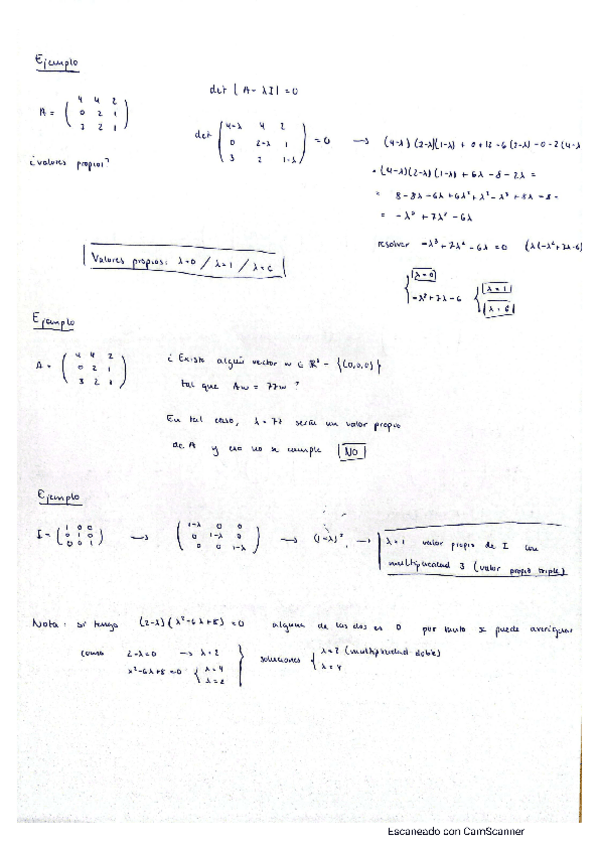 Ejemplo
A = ( 4 4 2 / 0 2 1 / 3 2 1 )
det |A - λI| = 0
det ( 4-λ 4 2 / 0 2-λ 1 / 3 2 1-λ ) = 0 → (4-λ)(2-λ)(1-λ) + 0 + 12 - 6(2-λ) - 0 - 2(4-λ
¿valores propios?
= (4-λ)(2-λ)(1-λ) + 6λ - 8 - 2λ =
= 8 - 8λ - 6λ + 6λ² + λ² - λ³ + 8λ - 8 -
= -λ³ + 7λ² - 6λ
resolver -λ³ + 7λ² - 6λ = 0 (λ(-λ²+7λ-6)
Valores propios: λ=0 / λ=1 / λ=6
λ=0
-λ²+7λ-6
λ=1
λ=6
Ejemplo
A = ( 4 4 2 / 0 2 1 / 3 2 1 )
¿Existe algún vector w ∈ ℝ³ - {(0,0,0)}
tal que Aw = 77w ?
En tal caso, λ = 77 sería un valor propio
de A y eso no se cumple NO
Ejemplo
I = ( 1 0 0 / 0 1 0 / 0 0 1 ) → ( 1-λ 0 0 / 0 1-λ 0 / 0 0 1-λ ) → (1-λ)³ → λ=1 valor propio de I con
multiplicidad 3 (valor propio triple)
Nota: si tengo (2-λ)(λ²-6λ+8)=0 alguno de los dos es 0 por tanto se puede averiguar
como 2-λ=0 → λ=2
x²-6λ+8=0 { λ=4 λ=2
soluciones { λ=2 (multiplicidad doble)
λ=4
Escaneado con CamScanner